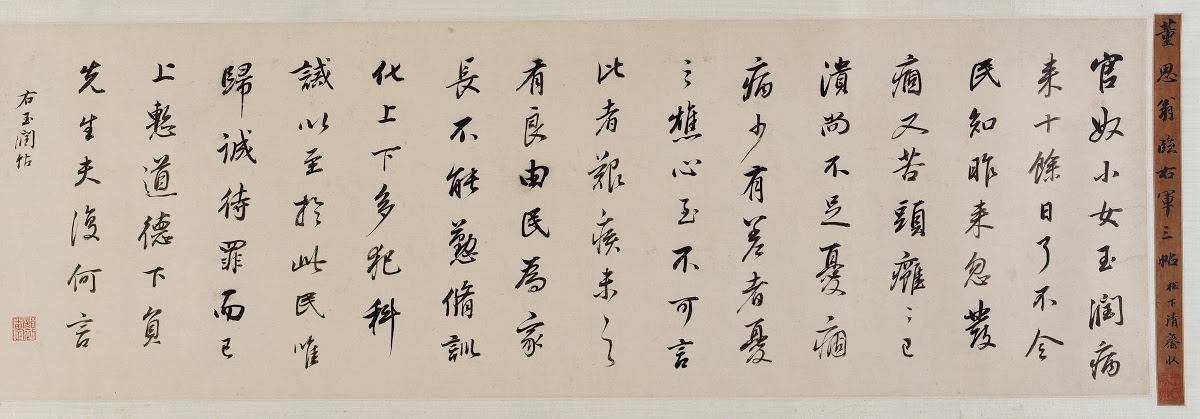 董思翁臨右軍三帖 松下清齋收
官奴小女玉潤病
来十餘日了不令
民知昨来忽發
痼又苦頭癰〻已
潰尚不足憂痼
病少有差者憂
之燋心至不可言
此者艱疾未之
有良由民為家
長不能懃脩訓
化上下多犯科
誡以至於此民唯
歸誠待罪而已
上慙道德下負
先生夫復何言
右玉潤帖